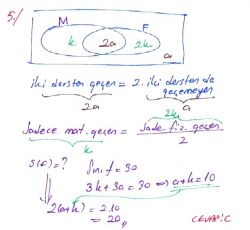 5./
M F
k 2a 2k
a
iki dersten geçen = 2. iki dersten de geçemeyen
2a a
Sadece mat. geçen = Sade fiz. geçen / 2
2k
k
S(F)=? Sınıf = 30
3k+3a = 30 ⇒ a+k = 10
2(a+k) = 2.10
= 20//
CEVAP: C